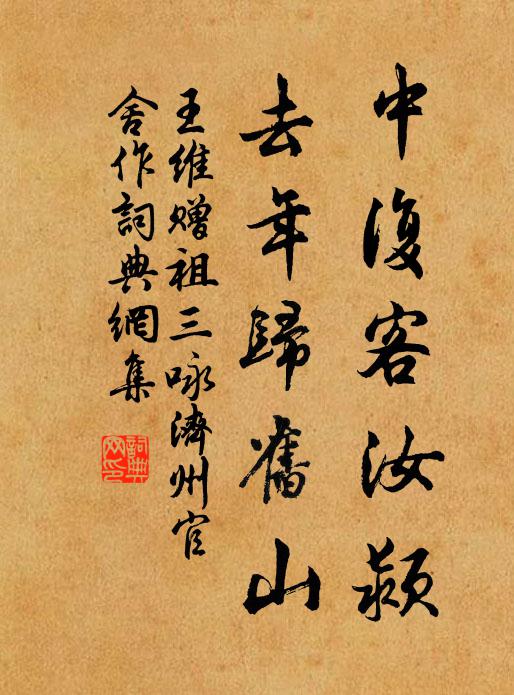 中復客汝潁
去年歸舊山
王維贈祖三咏濟州官
舍作詞典網集
詞典
网印